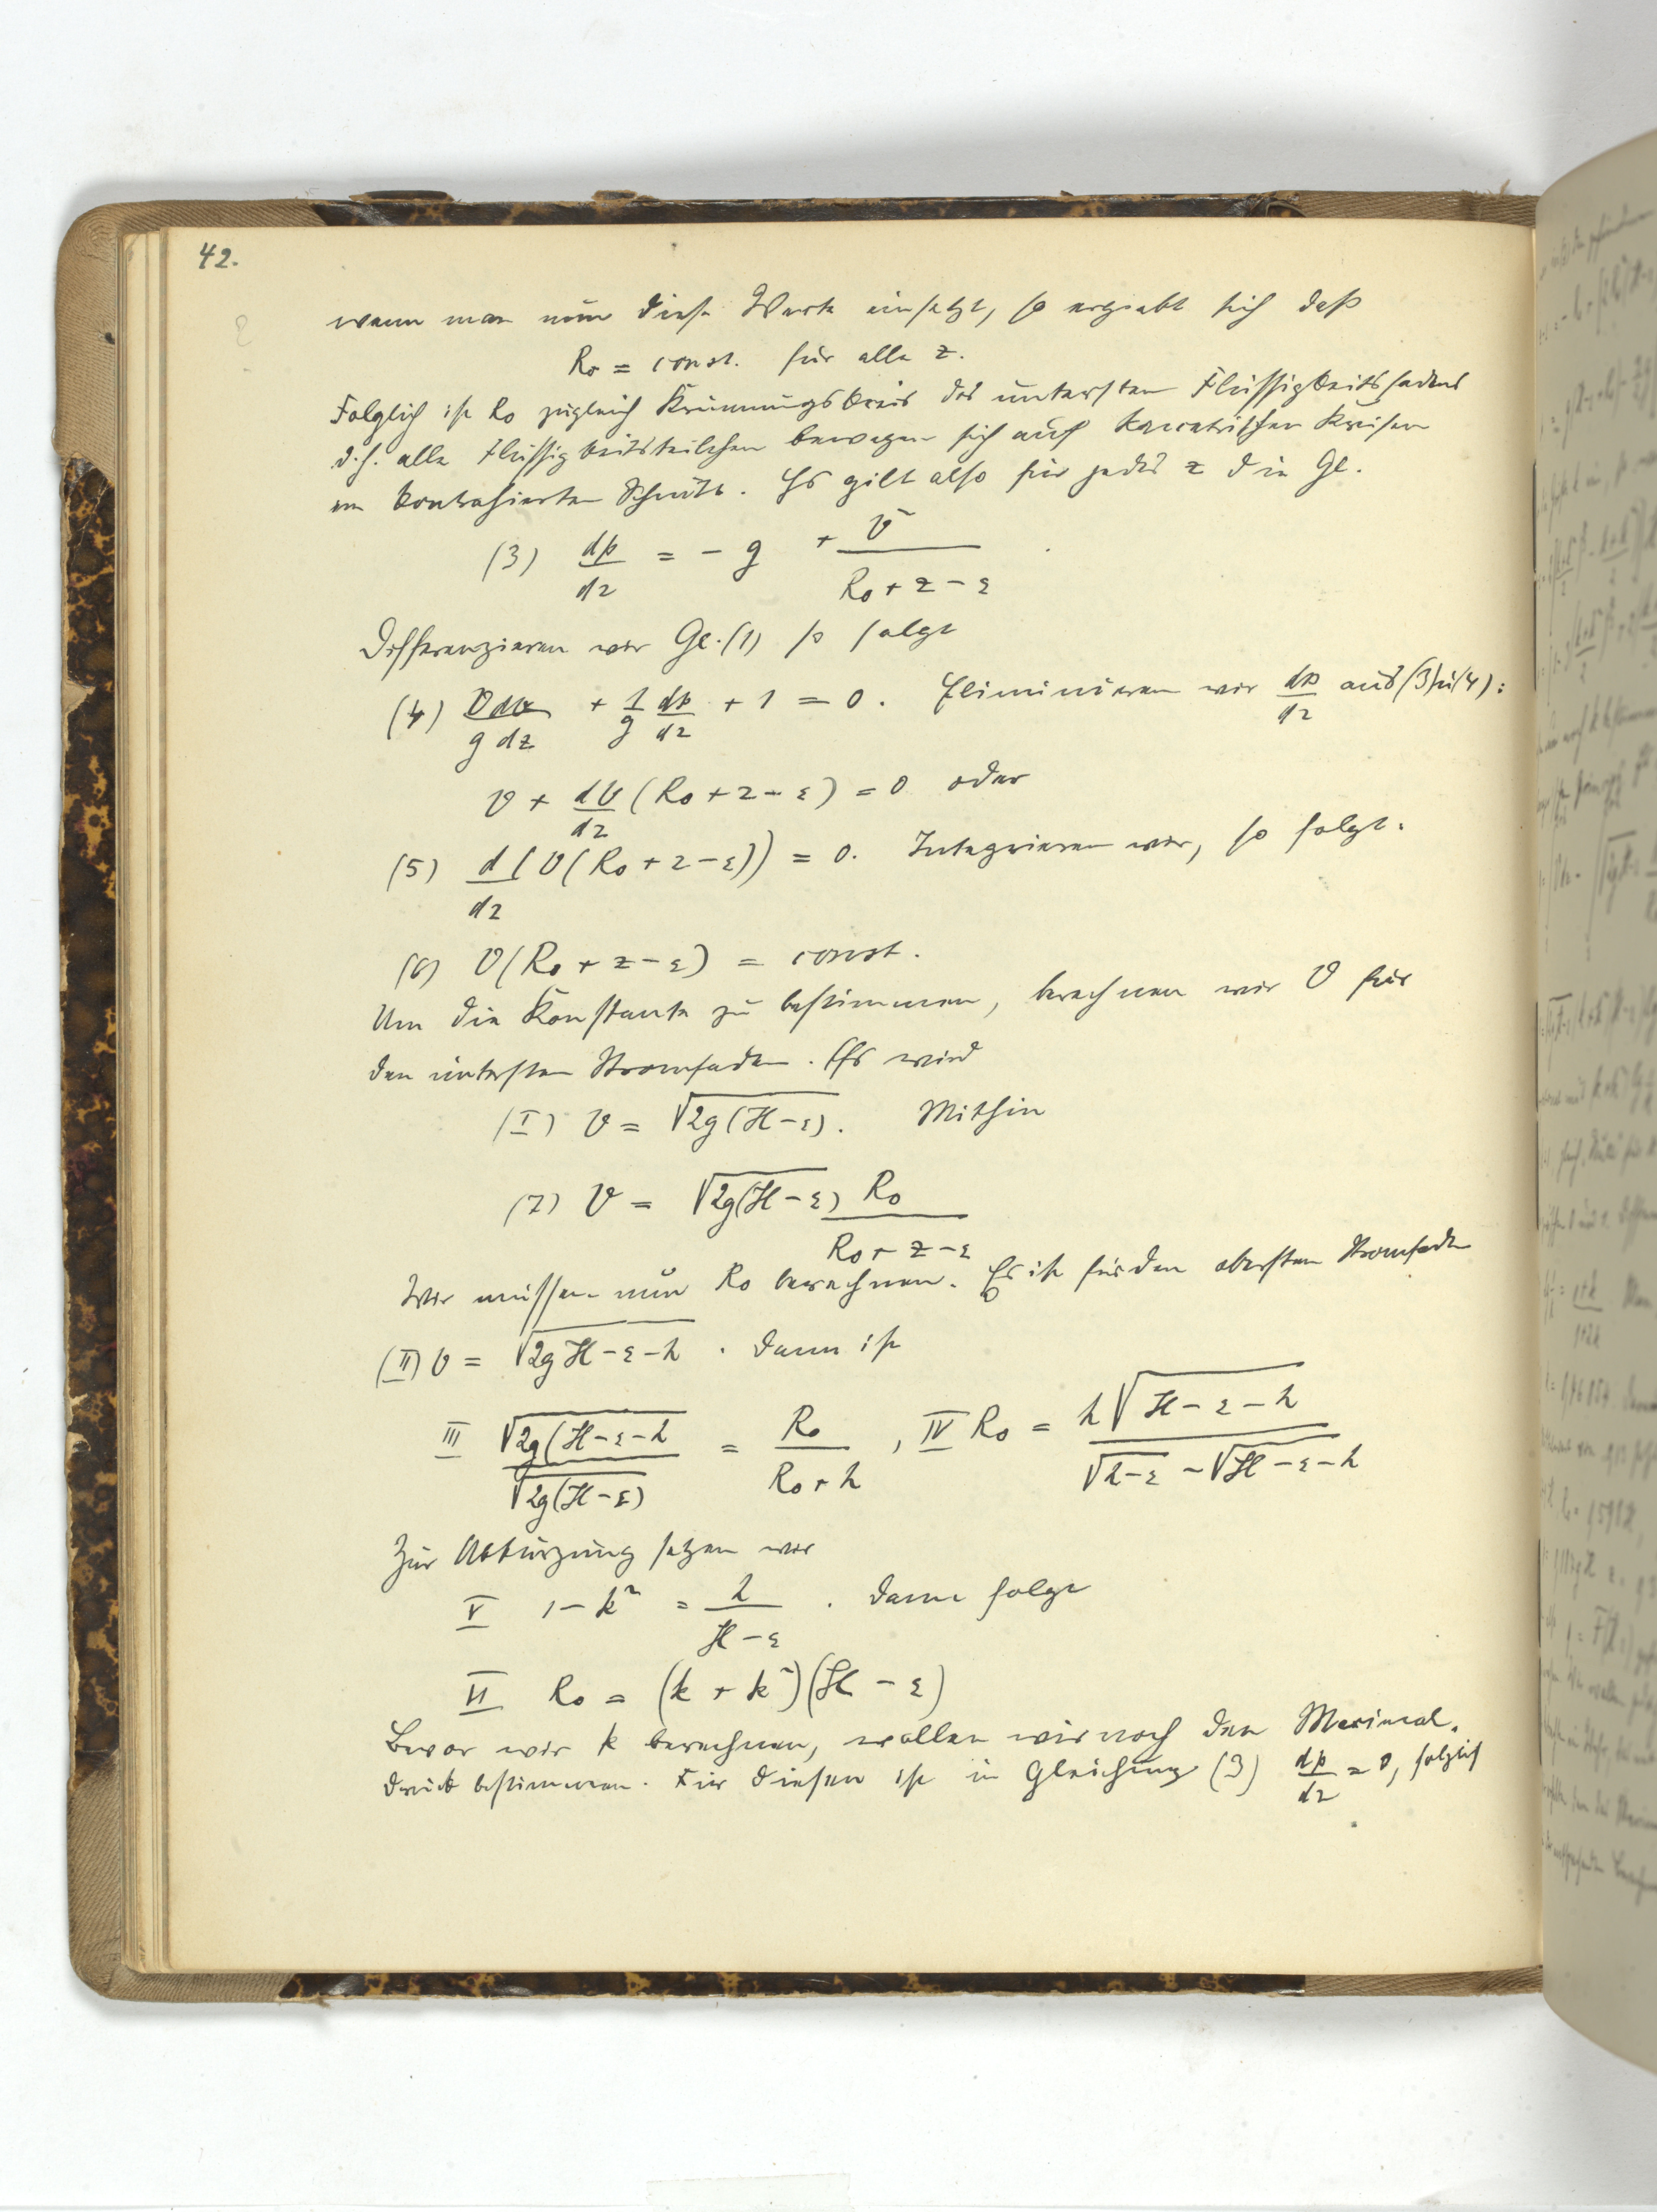 42.
wenn man nun diese Werte einsetzt, so ergiebt sich daß
R₀ = const. für alle z.
Folglich ist R₀ zugleich Krümmungskreis des untersten Flüssigkeitsfadens
d.h. alle Flüssigkeitsteilchen bewegen sich auf konzentrischen Kreisen
im kontrahierten Schnitt. Es gilt also für jedes z die Gl.
(3) dp/dz = - g + v²/(R₀ + z - ε)
Differenzieren wir Gl. (1) so folgt
(4) v dv/(g dz) + 1/g dp/dz + 1 = 0. Eliminieren wir dp/dz aus (3) u (4):
v + dv/dz (R₀ + z - ε) = 0 oder
(5) d/dz (v(R₀ + z - ε)) = 0. Integrieren wir, so folgt.
(6) v(R₀ + z - ε) = const.
Um die Konstante zu bestimmen, berechnen wir v für
den untersten Stromfaden. Es wird
(I) v = √(2g(H - ε)). Mithin
(7) v = √(2g(H - ε)) R₀/(R₀ + z - ε)
Wir müssen nun R₀ berechnen. Es ist für den obersten Stromfaden
(II) v = √(2g H - ε - h) . Dann ist
III √(2g(H - ε - h)/√(2g(H - ε)) = R₀/(R₀ + h) , IV R₀ = h√(H - ε - h)/(√(h - ε) - √(H - ε - h))
Zur Abkürzung setzen wir
V 1 - k² = h/(H - ε) . Dann folgt
VI R₀ = (k + k²)(H - ε)
Bevor wir k berechnen, wollen wir noch den Maximal.
druck bestimmen. Für diesen ist in Gleichung (3) dp/dz = 0, folglich